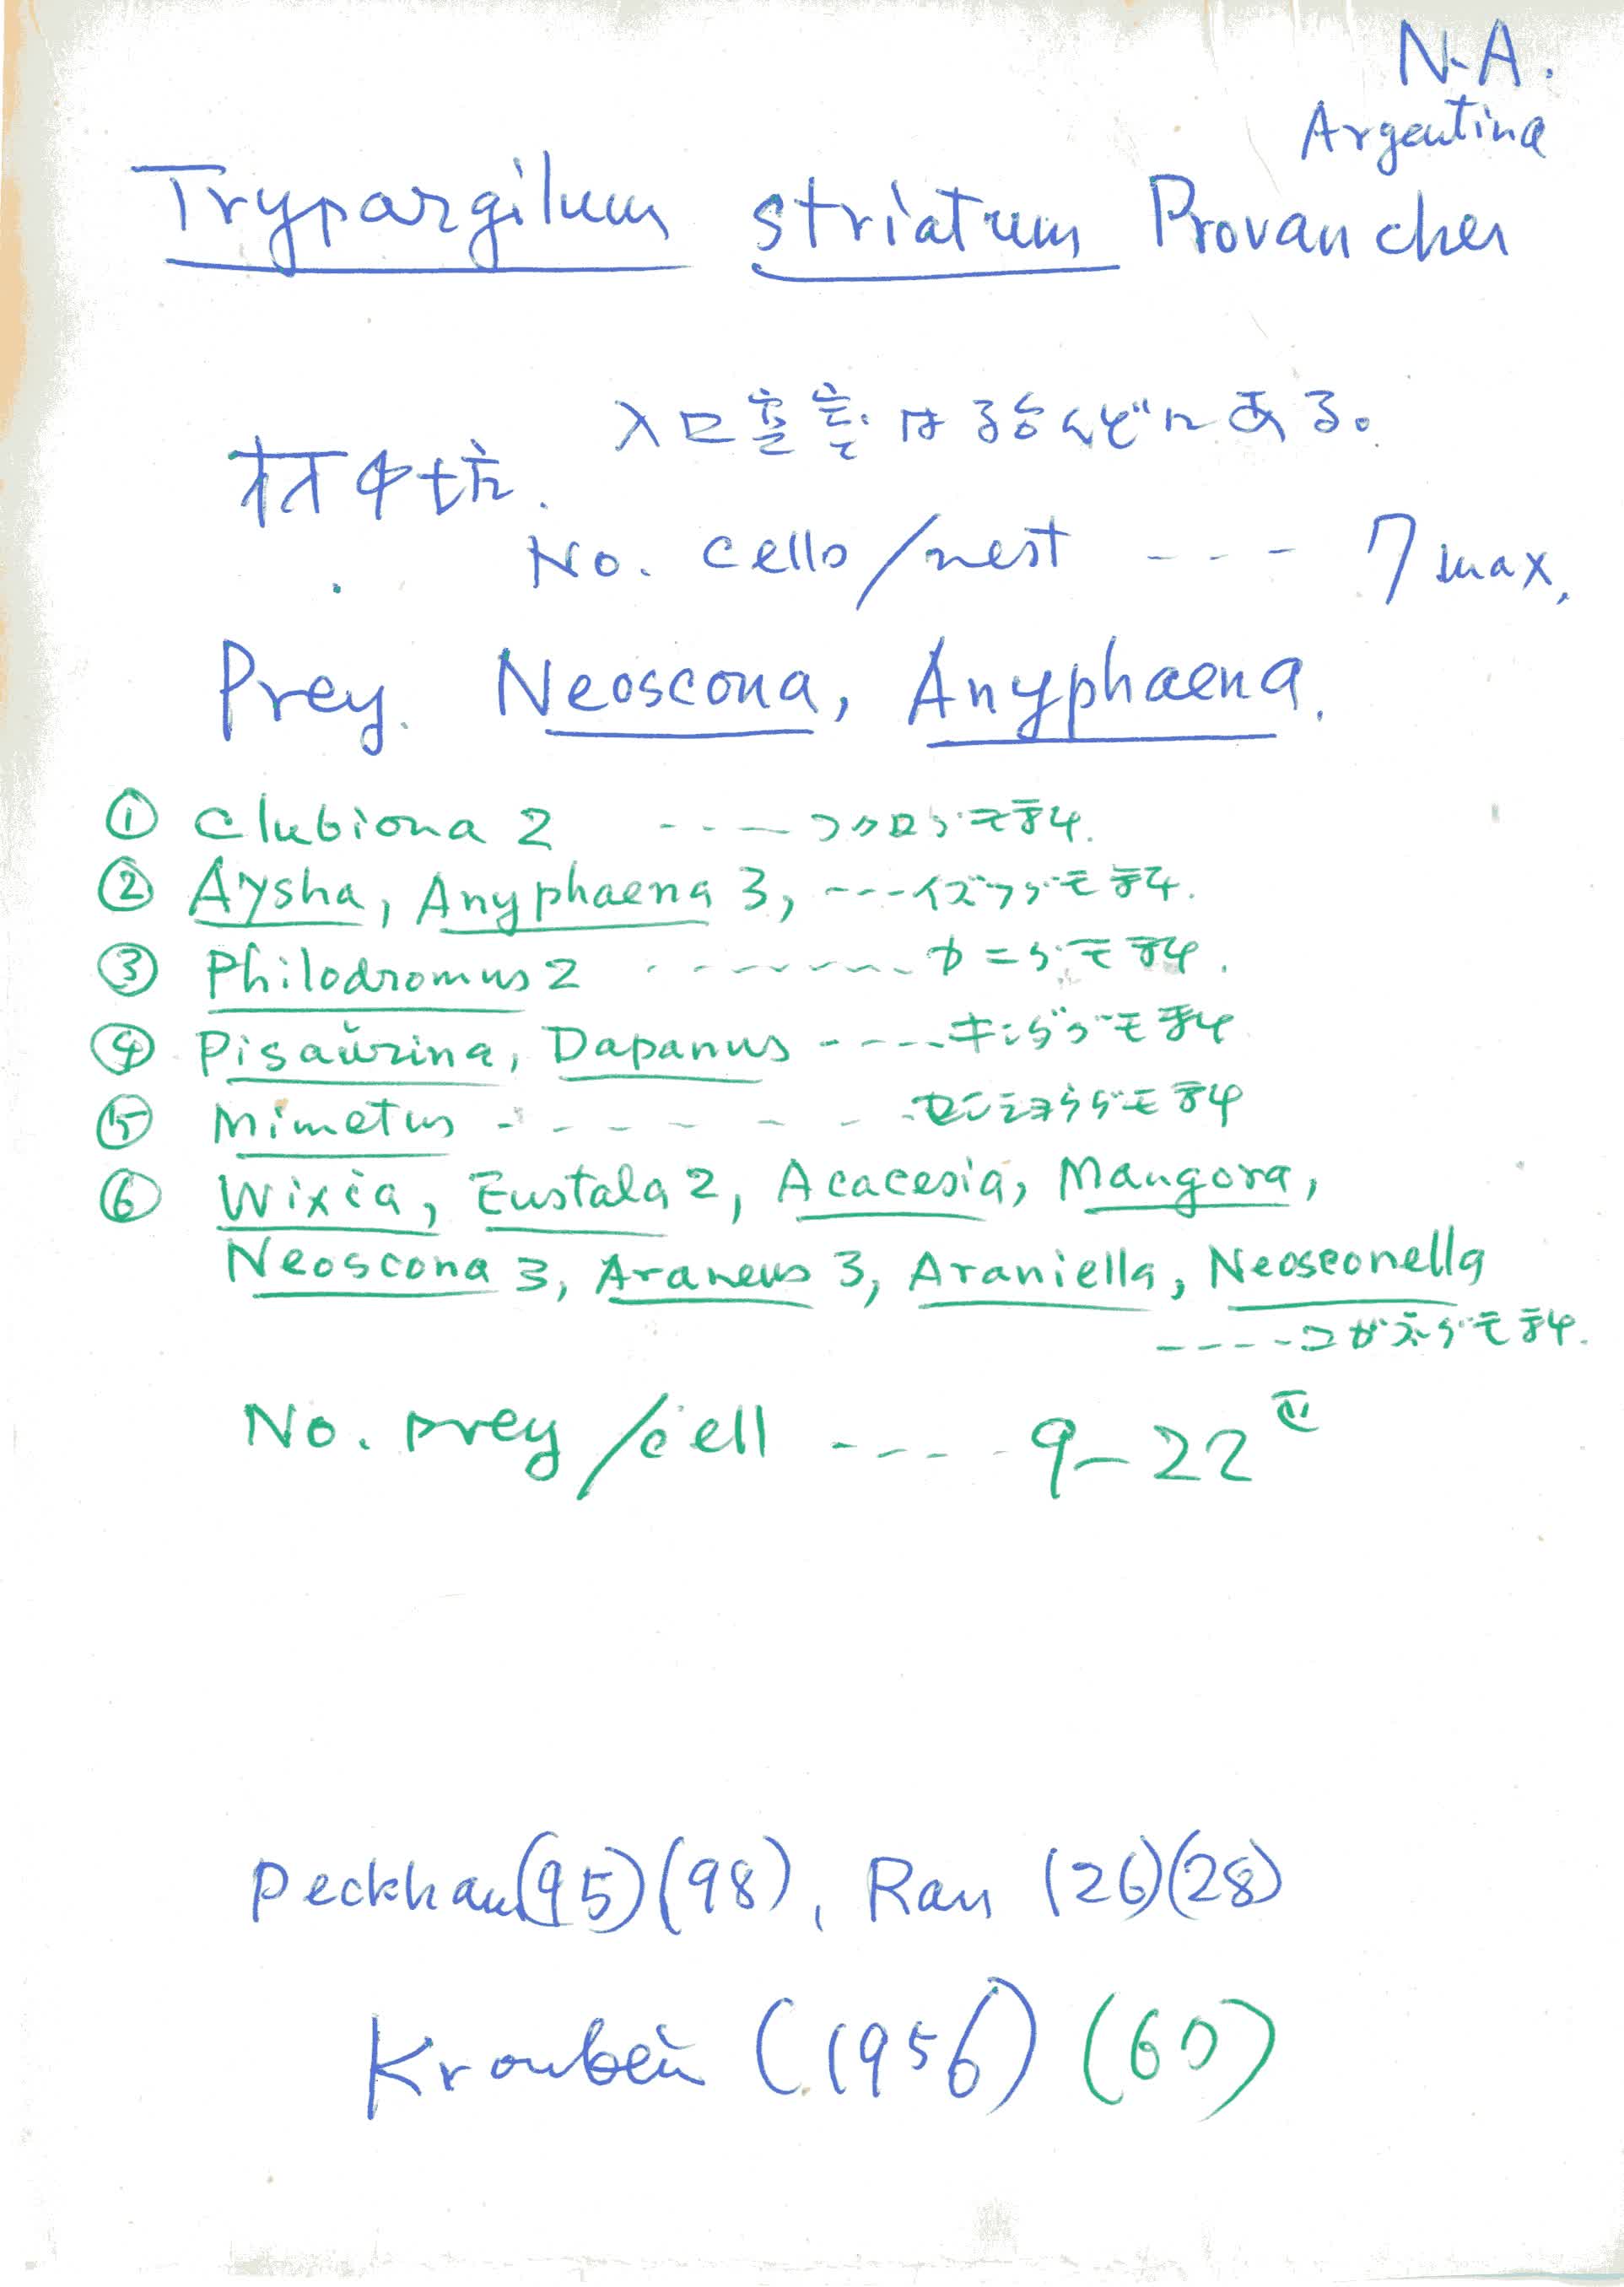 N.A.
Argentina
Trypargilum striatum Provancher
入口室 は殆んどにある。
材中坑.
No. cells/nest --- 7 max.
Prey. Neoscona, Anyphaena.
① Clubiona 2 ---- フクログモ科.
② Aysha, Anyphaena 3, ---イヅツグモ科.
③ Philodromus 2 -------- カニグモ科.
④ Pisaurina, Dapanus ----- キシダグモ科
⑤ Mimetus ------- センショウグモ科
⑥ Wixia, Eustala 2, Acacesia, Mangora,
Neoscona 3, Araneus 3, Araniella, Neosconella
-----コガネグモ科.
No. prey/cell ---- 9-22
Peckham(95)(98), Rau (26)(28)
Krombein (1956) (60)